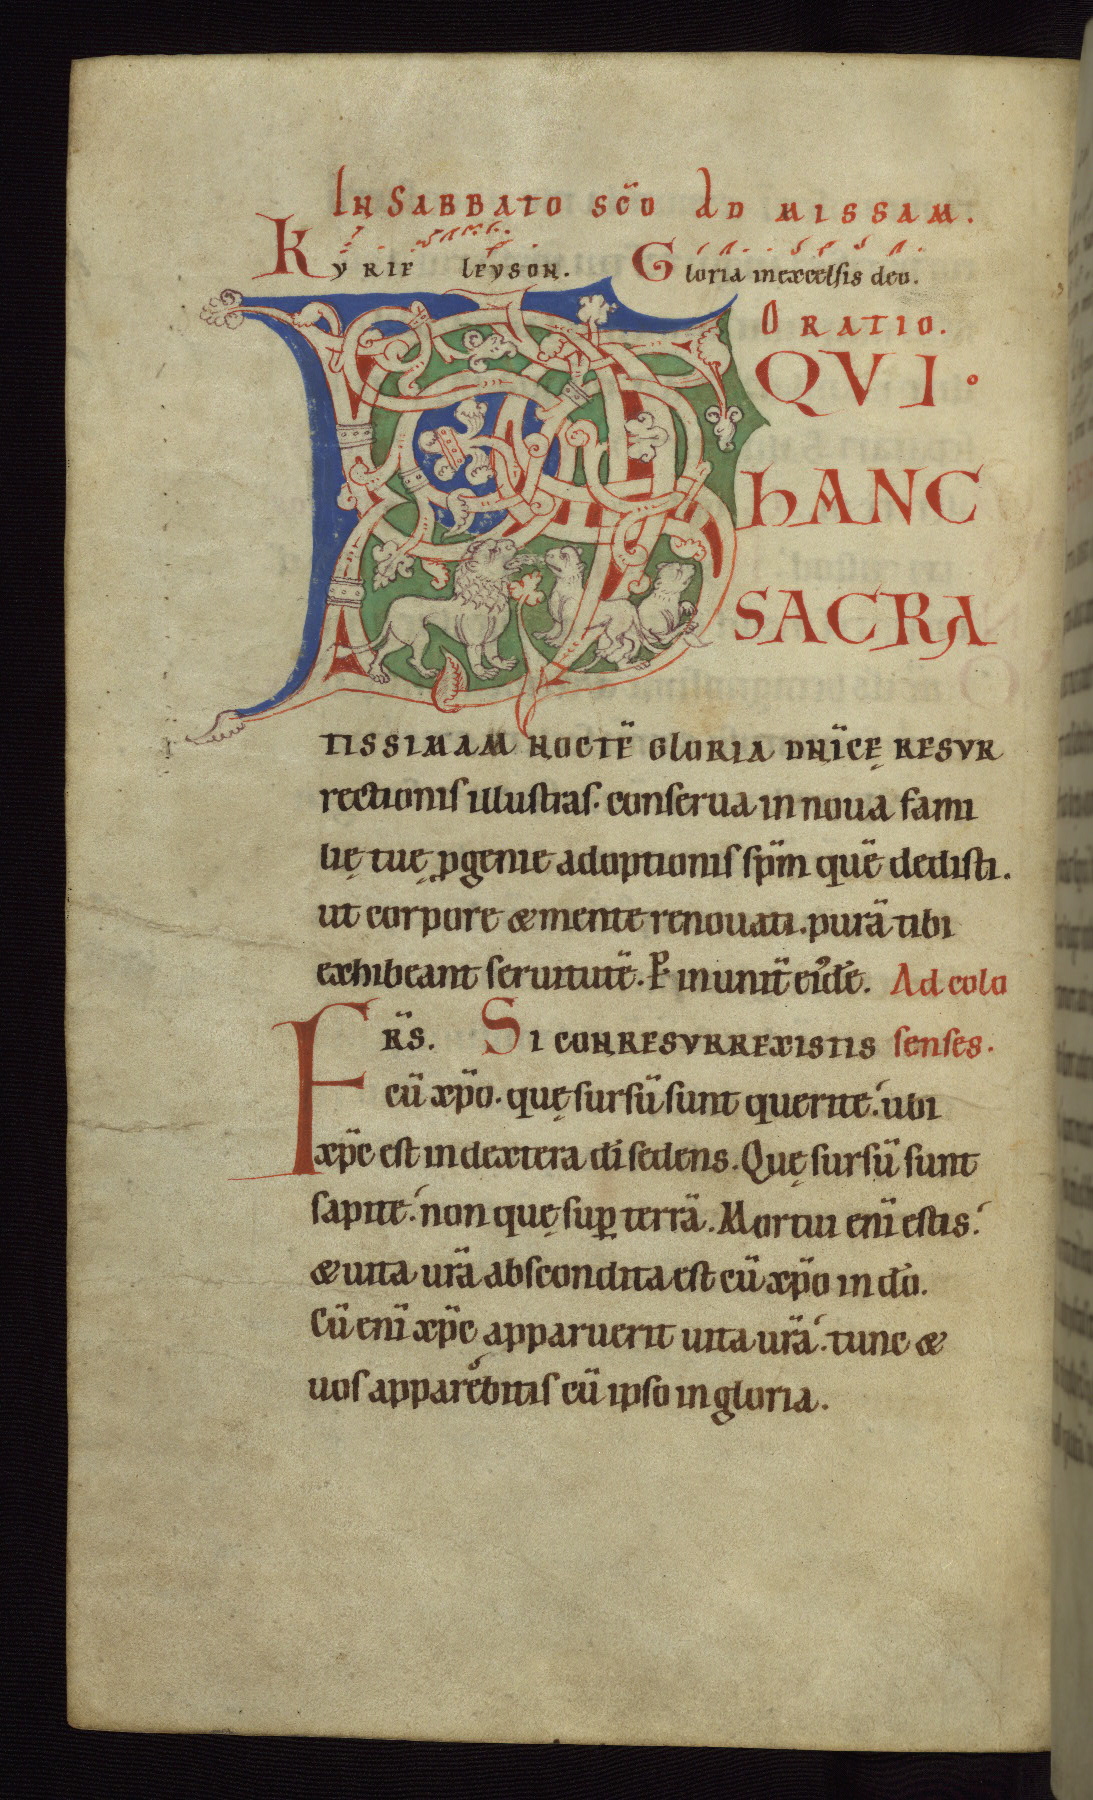 In Sabbato sc̄o ad missam.
Kyrie leyson. Gloria in excelsis deo.
Oratio.
D QVI·
hANC
SACRA
TISSIMAM NOCTĒ GLORIA DN̄ICĘ RESVR
rectionis illustras· conserua in noua fami
lię tuę ꝓgenie adoptionis sp̄m quē dedisti.
ut corpore & mente renouati. purā tibi
exhibeant seruitutē. P in unit̄ eiꝰdē. Ad colo
FR̄S. SI CONRESVRREXISTIS senses·
cū xp̄o. quę sursū sunt querite: ubi
xp̄c est in dextera dī sedens. Quę sursū sunt
sapite: non quę suꝑ terrā. Mortui enī estis:
& uita ur̄a abscondita est cū xp̄o in dō.
Cū enī xp̄c apparuerit uita ur̄a: tunc &
uos apparebitis cū ipso in gloria.